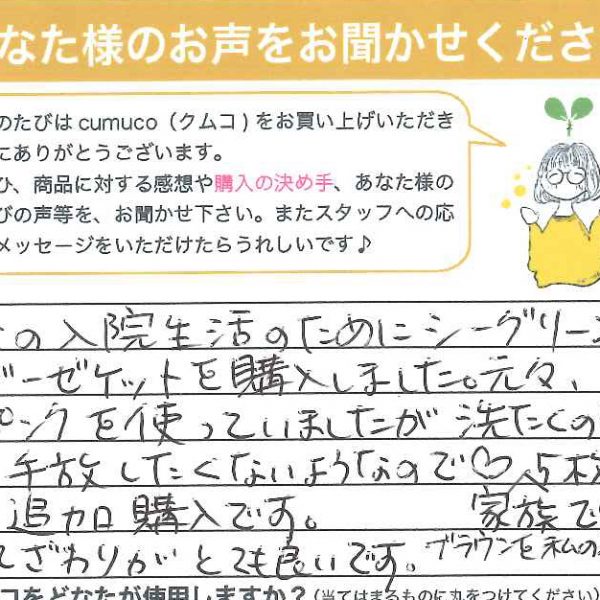 なた様のお声をお聞かせくださ
のたびは cumuco（クムコ）をお買い上げいただき
にありがとうございます。
ひ、商品に対する感想や購入の決め手、あなた様の
びの声等を、お聞かせ下さい。またスタッフへの応
メッセージをいただけたらうれしいです♪
の入院生活のためにシーグリーン
ガーゼケットを購入しました。元々、
ピンクを使っていましたが 洗たくの
手放したくないようなので♡ 5枚
追加購入です。 家族で
てざわりがとても良いです。ブラウンを私の
コをどなたが使用しますか？（当てはまるものに丸をつけてください）